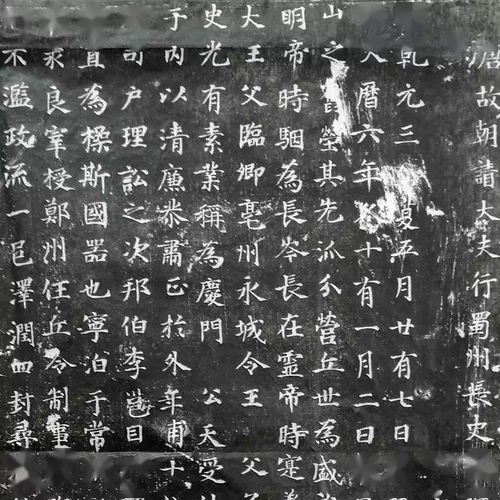 故朝請大夫行蜀州長史
乹元三 夏五月廿有七日
大曆六年冬十有一月二日
山之舊塋其先派分營丘世為盛
明帝時駰為長岑長在靈帝時寔
大王父臨卿亳州永城令王 父
史光有素業稱為慶門 公天受
于內以清廉恭肅正於外年甫十
司户理訟之次邦伯李邕目
直為樑斯國器也寧泊于常
求良宰授鄭州任丘令制
不濫政流一邑澤潤四封尋